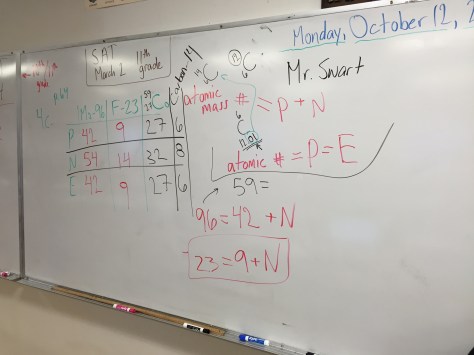 Monday, October 12, 2
Mr. Swart
SAT 11th
March 2 grade
Mo-96 F-23 59 27 Co Carbon-14
P 42 9 27 6
N 54 14 32 8
E 42 9 27 6
14 6 C
13 6 C
atomic mass # = P + N
6 C
atomic # = P = E
59=
96=42+N
23=9+N